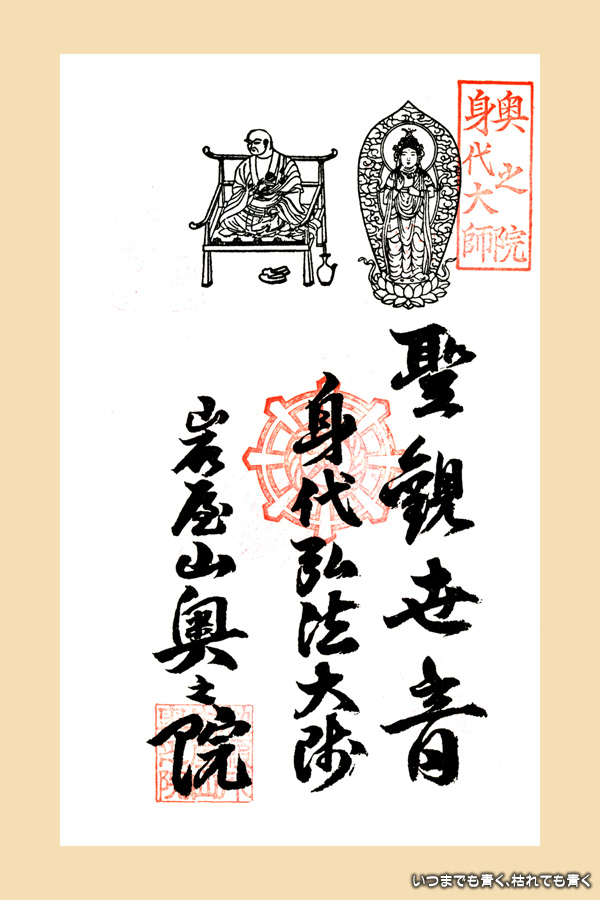 奥之院
身代大師
聖観世音
身代弘法大師
岩屋山奥之院
いつまでも青く、枯れても青く